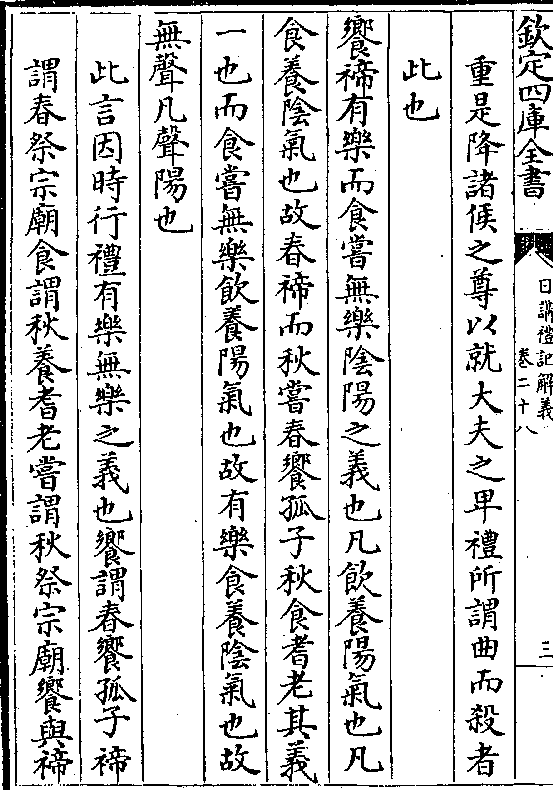 欽定四庫全書
日講禮記解義
卷二十八
三
重是降諸侯之尊以就大夫之卑禮所謂曲而殺者
此也
饗禘有樂而食嘗無樂陰陽之義也凡飲養陽氣也凡
食養陰氣也故春禘而秋嘗春饗孤子秋食耆老其義
一也而食嘗無樂飲養陽氣也故有樂食養陰氣也故
無聲凡聲陽也
此言因時行禮有樂無樂之義也饗謂春饗孤子禘
謂春祭宗廟食謂秋養耆老嘗謂秋祭宗廟饗與禘